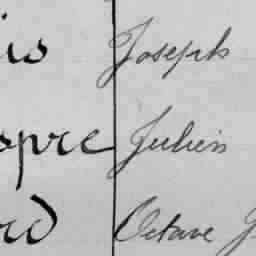 is Joseph
spre Julien
rd Octave J